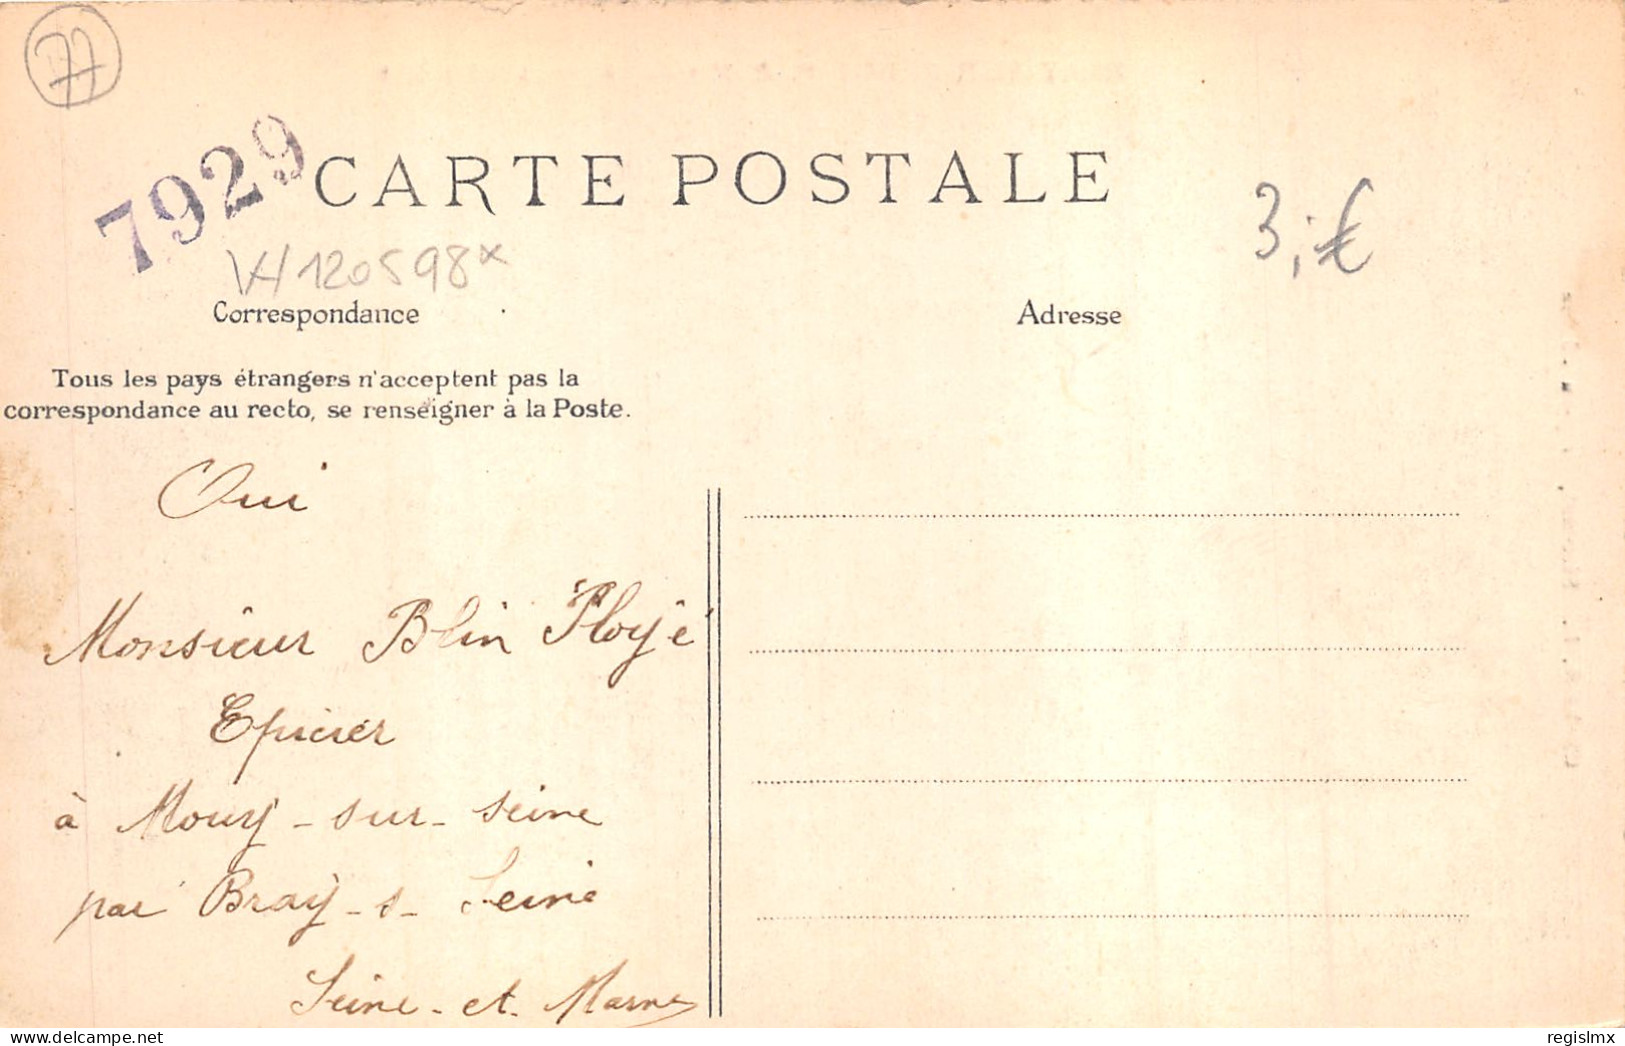 77
7929
CARTE POSTALE
3,-€
VH120598*
Correspondance
Adresse
Tous les pays étrangers n'acceptent pas la
correspondance au recto, se renseigner à la Poste.
Oui
Monsieur Blin Ployé
Epicier
à Mouy-sur-Seine
par Bray-s-Seine
Seine-et-Marne
delcampe.net
regislmx